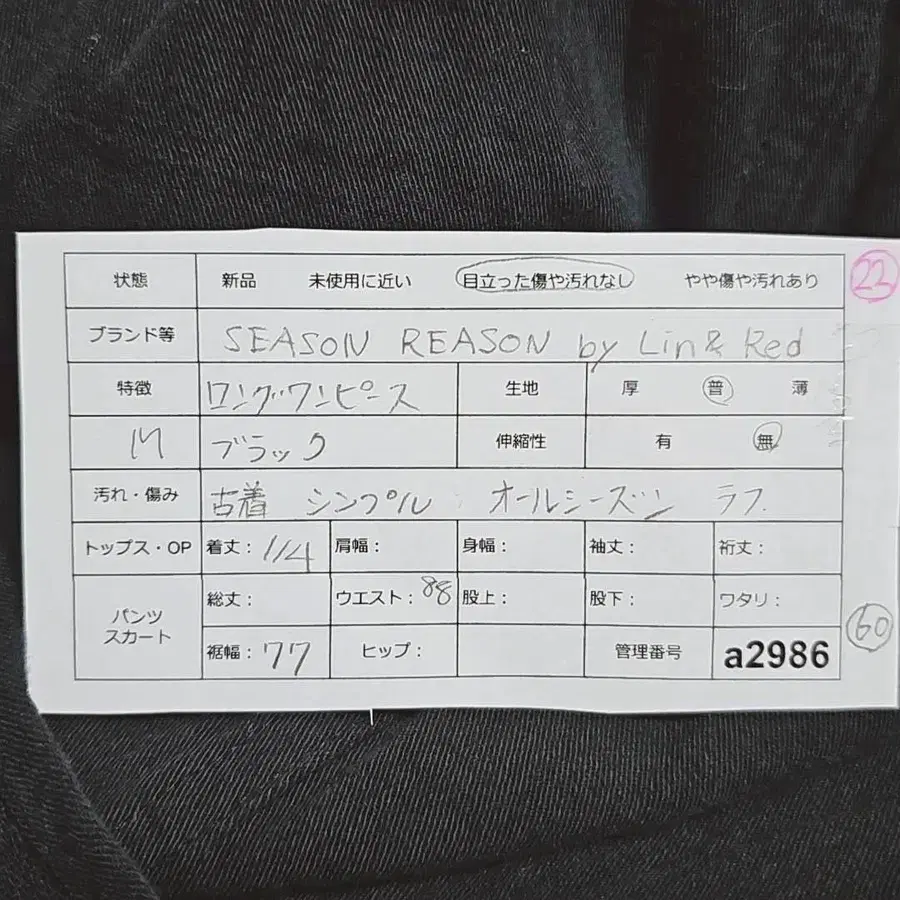 状態 新品 未使用に近い 目立った傷や汚れなし やや傷や汚れあり 22
ブランド等 SEASON REASON by Lin& Red
特徴 ロングワンピース 生地 厚 普 薄
M ブラック 伸縮性 有 無
汚れ・傷み 古着 シンプル オールシーズン ラフ
トップス・OP 着丈: 114 肩幅: 身幅: 袖丈: 裄丈:
パンツ スカート 総丈: ウエスト: 88 股上: 股下: ワタリ: 60
裾幅: 77 ヒップ: 管理番号 a2986